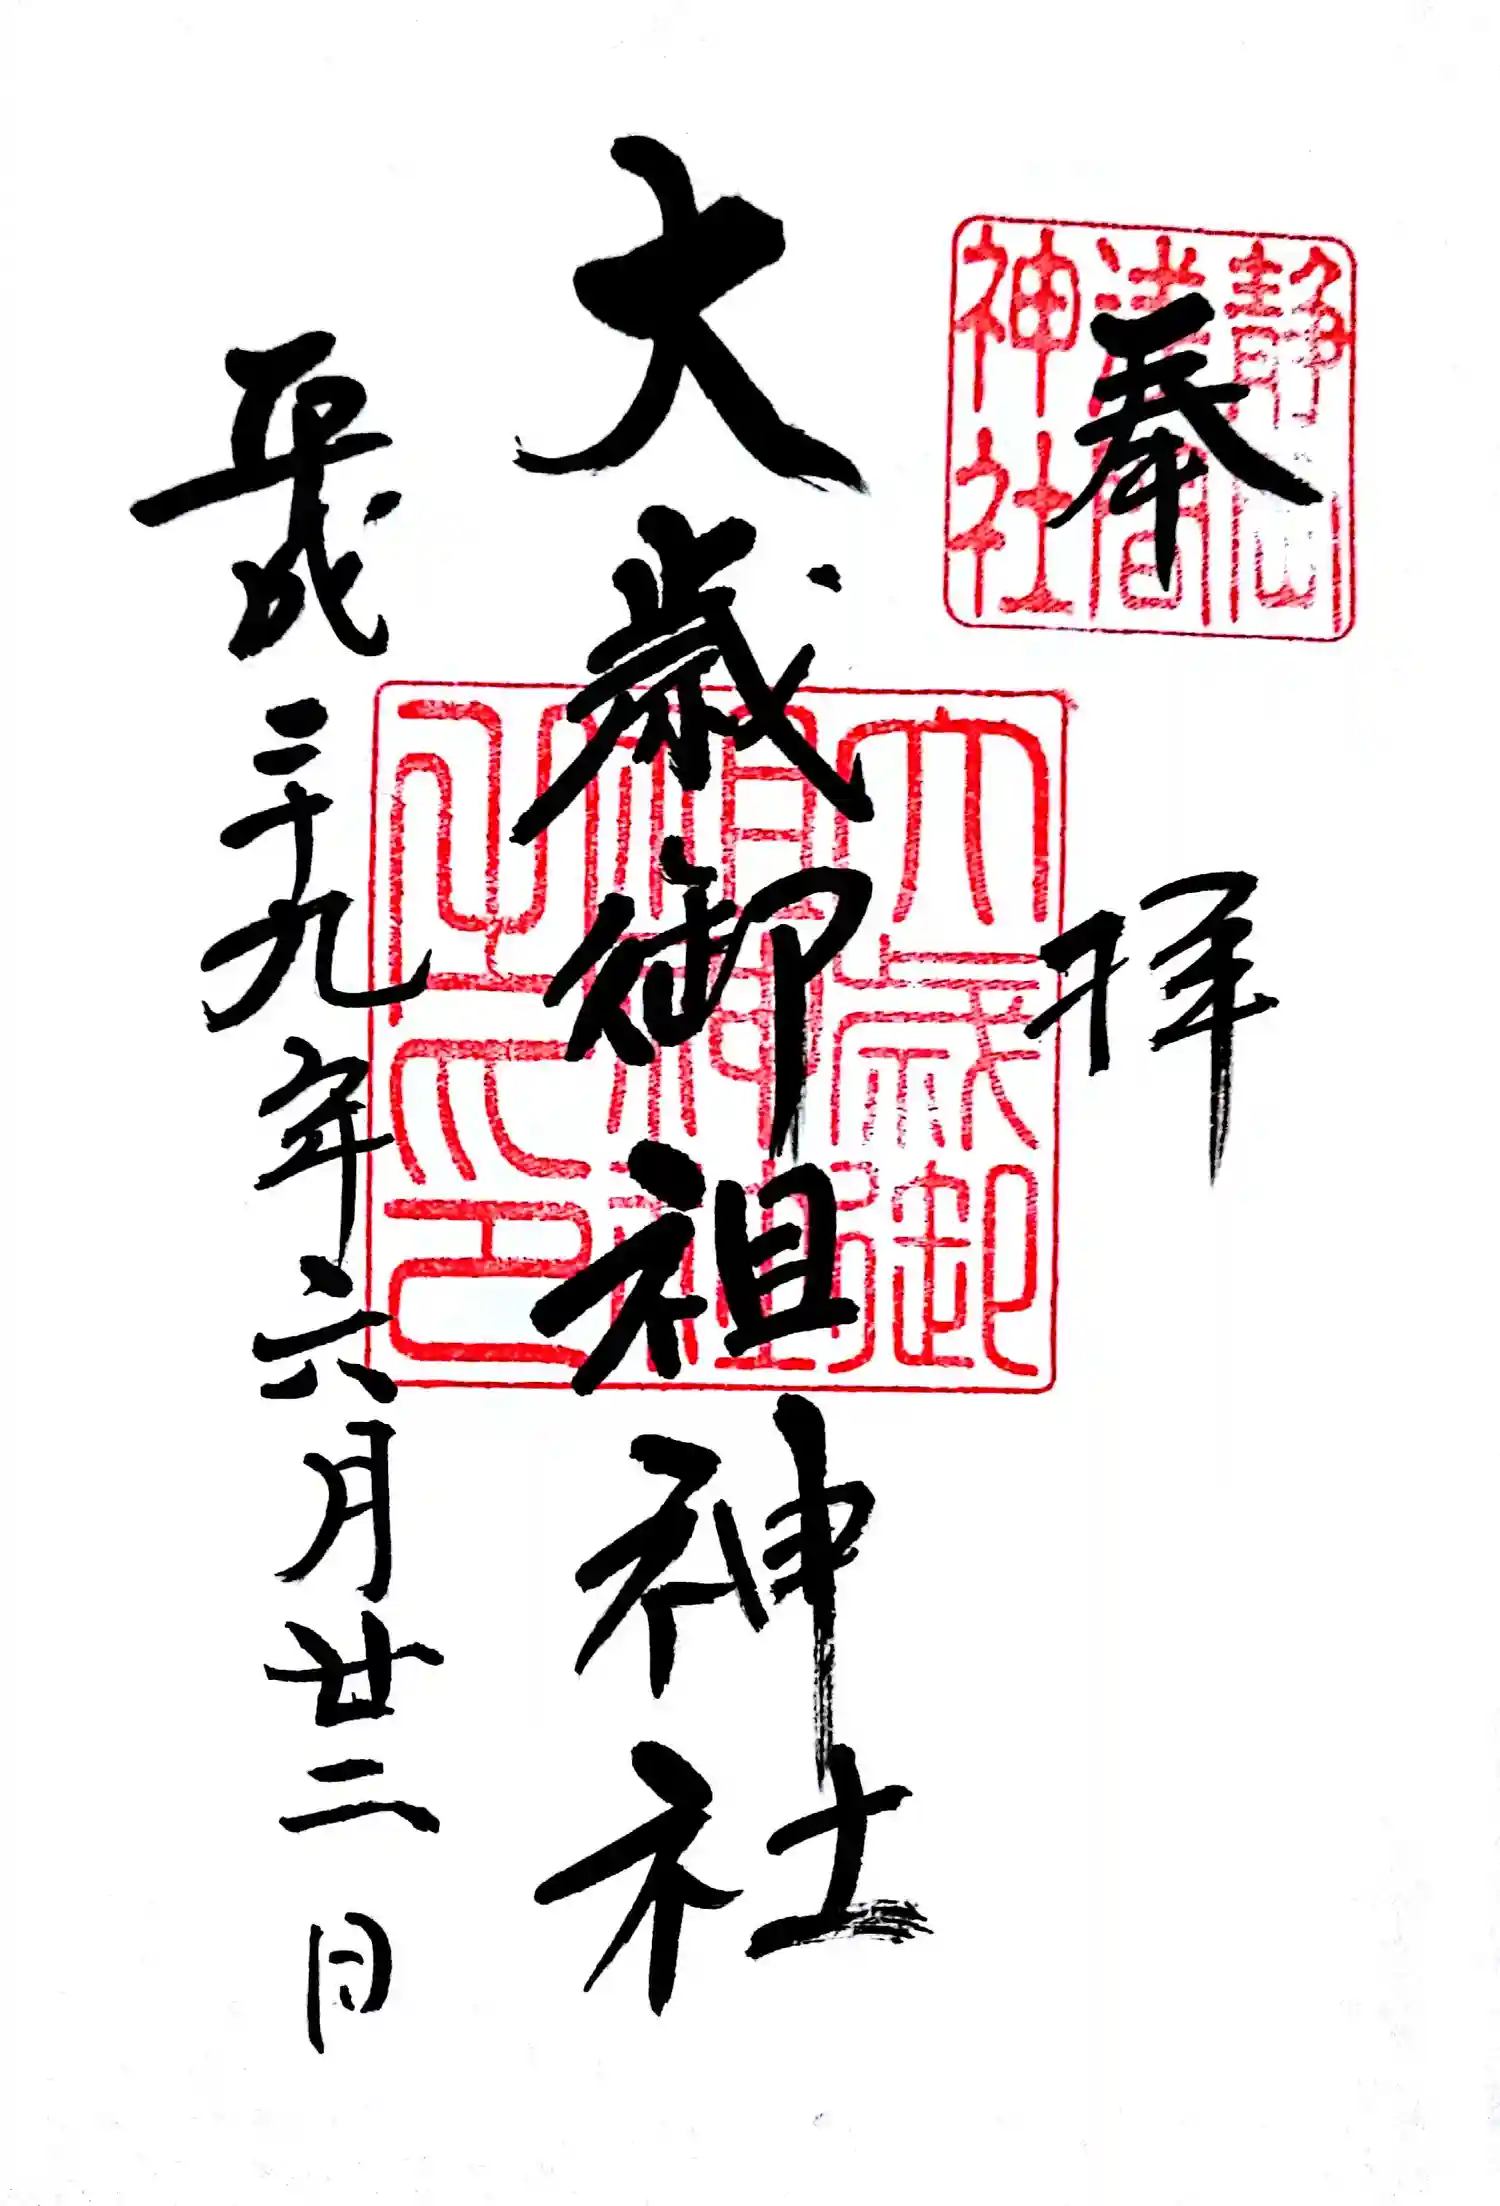 静岡
浅間
神社
奉拝
大歳御
祖神社
之印
大歳御祖神社
平成二十九年六月廿二日